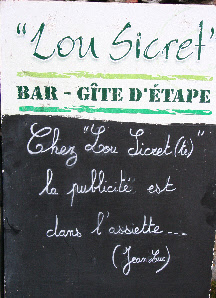 "Lou Sicret"
BAR - GÎTE D'ÉTAPE
Chez "Lou Sicret (te)"
la publicité est
dans l'assiette...
(Jean Luc)